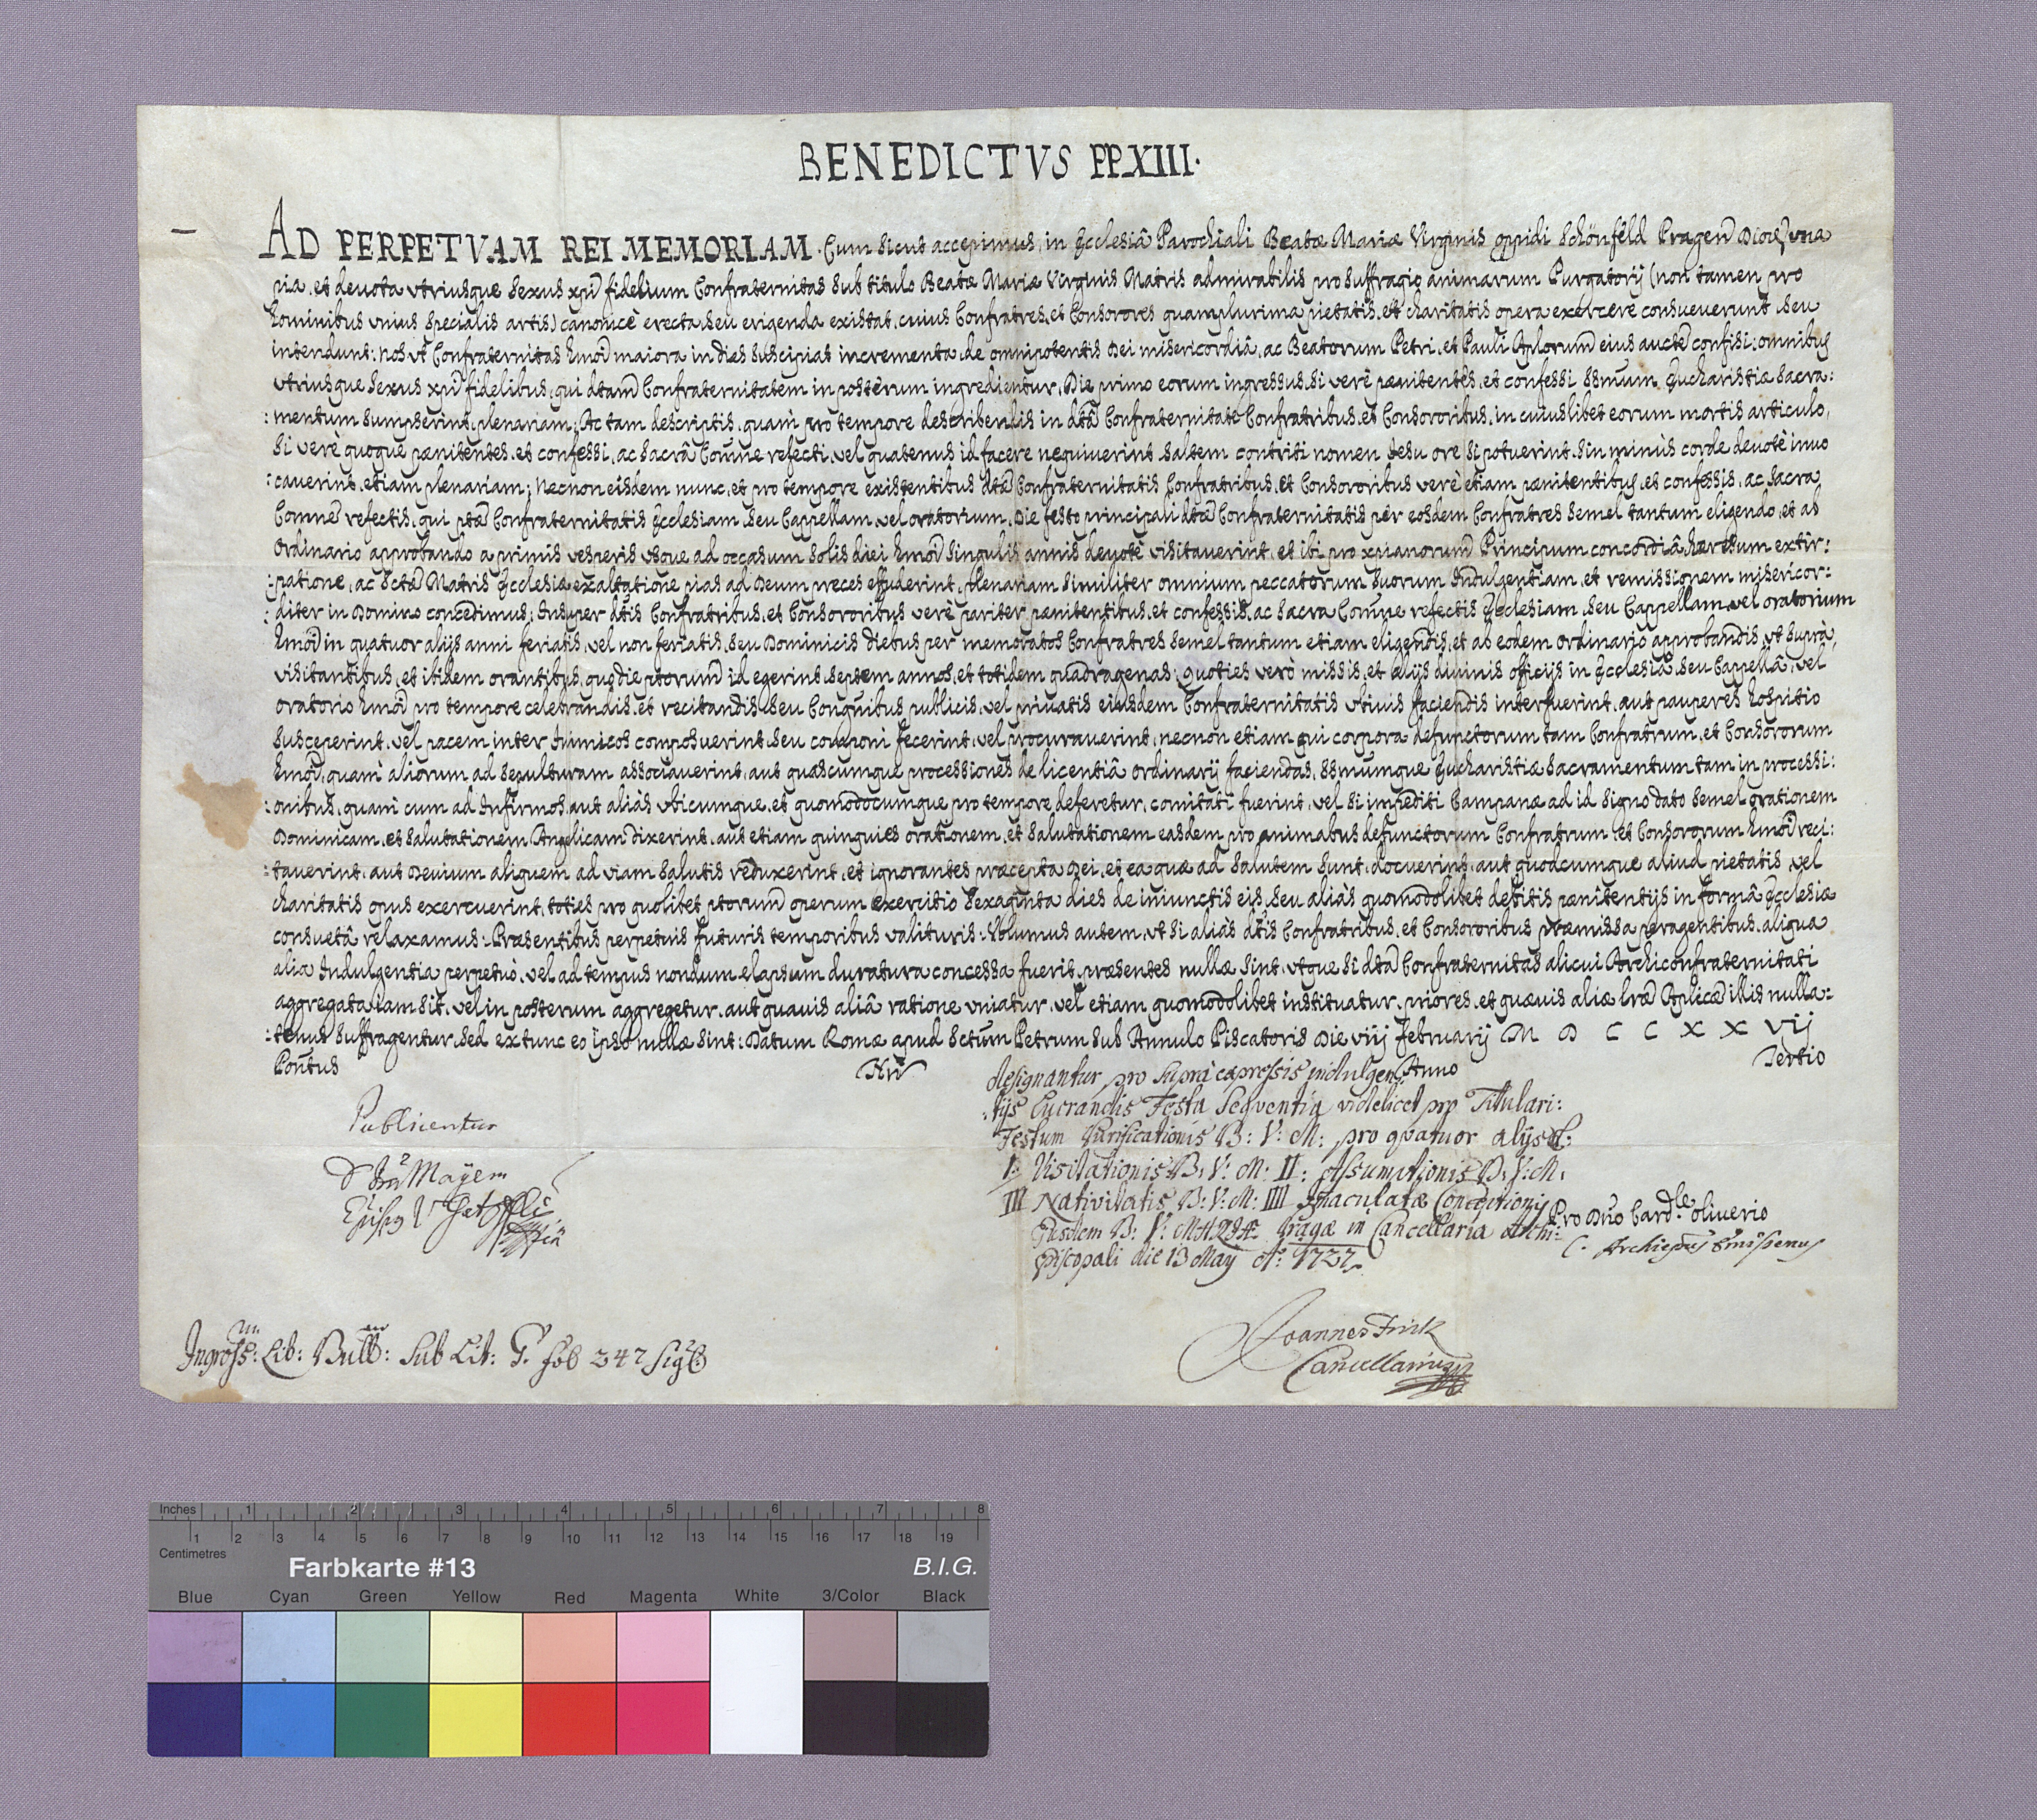 BENEDICTVS PP. XIII.
AD PERPETVAM REI MEMORIAM. Cum sicut accepimus, in Ecclesiâ Parochiali Beatæ Mariæ Virginis oppidi Schönfeld Pragen Dioec, vna
pia, et deuota vtriusque sexus xpi fidelium Confraternitas sub titulo Beatæ Mariæ Virginis Matris admirabilis pro suffragio animarum Purgatorij (non tamen pro
hominibus vnius specialis artis) canonicè erecta, seu erigenda existat, cuius Confratres, et Consorores quamplurima pietatis, et charitatis opera exercere consueuerunt, seu
intendunt: nos vt Confraternitas hmoi maiora in dies suscipiat incrementa, de omnipotentis Dei misericordiâ, ac Beatorum Petri, et Pauli Aplorum eius aucte confisi: omnibus
vtriusque sexus xpi fidelibus, qui dtam Confraternitatem in posterum ingredientur, Die primo eorum ingressus, si verè pænitentes, et confessi ssmum Eucharistiæ Sacra:
:mentum sumpserint, plenariam; Ac tam descriptis, quam pro tempore describendis in dta Confraternitate Confratribus, et Consororibus, in cuiuslibet eorum mortis articulo,
si verè quoque pænitentes, et confessi, ac sacrâ Comne refecti, vel quatenus id facere nequiuerint, saltem contriti nomen Jesu ore si potuerint, sin minùs corde deuotè inuo
:cauerint, etiam plenariam; Necnon eisdem nunc, et pro tempore existentibus dtæ Confraternitatis Confratribus, et Consororibus verè etiam pænitentibus, et confessis, ac sacra
Comne refectis, qui ptæ Confraternitatis Ecclesiam, seu Cappellam, vel oratorium, Die festo principali dtæ Confraternitatis per eosdem Confratres semel tantum eligendo, et ab
Ordinario approbando a primis vesperis vsque ad occasum solis diei hmoi singulis annis deuotè visitauerint, et ibi pro xpianorum Principum concordiâ, hæresum extir:
:patione, ac Sctæ Matris Ecclesiæ exaltatione pias ad Deum preces effuderint, plenariam similiter omnium peccatorum suorum Indulgentiam, et remissionem misericor:
:diter in Domino concedimus; Insuper dtis Confratribus, et Consororibus verè pariter pænitentibus, et confessis, ac sacra Comne refectis Ecclesiam, seu Cappellam, vel oratorium
hmoi in quatuor alijs anni feriatis, vel non feriatis, seu Dominicis diebus per memoratos Confratres semel tantum etiam eligendis, et ab eodem ordinario approbandis, vt suprà,
visitantibus, et ibidem orantibus, quo die ptorum id egerint, septem annos, et totidem quadragenas; quoties verò missis, et alijs diuinis officijs in Ecclesiâ, seu Cappellâ, vel
oratorio hmoi pro tempore celebrandis, et recitandis, seu Congnibus publicis, vel priuatis eiusdem Confraternitatis vbiuis faciendis interfuerint, aut pauperes hospitio
susceperint, vel pacem inter Inimicos composuerint, seu componi fecerint, vel procurauerint, necnon etiam qui corpora defunctorum tam Confratrum, et Consororum
hmoi, quàm aliorum ad sepulturam associauerint, aut quascumque processiones de licentiâ ordinarij faciendas, ssmumque Eucharistiæ Sacramentum tam in processi:
:onibus, quam cum ad Infirmos, aut aliàs vbicumque, et quomodocumque pro tempore deferetur, comitati fuerint, vel si impediti Campanæ ad id signo dato semel orationem
Dominicam, et salutationem Angelicam dixerint, aut etiam quinquies orationem, et salutationem easdem pro animabus defunctorum Confratrum, et Consororum hmoi reci:
:tauerint, aut Deuium aliquem ad viam salutis reduxerint, et ignorantes præcepta Dei, et ea quæ ad salutem sunt, docuerint, aut quodcumque aliud pietatis, vel
charitatis opus exercuerint, toties pro quolibet ptorum operum exercitio sexaginta dies de iniunctis eis, seu aliàs quomodolibet debitis pænitentijs in formâ Ecclesiæ
consuetâ relaxamus: Præsentibus perpetuis futuris temporibus valituris: Volumus autem, vt si aliàs dtis Confratribus, et Consororibus præmissa peragentibus, aliqua
alia Indulgentia perpetuò, vel ad tempus nondum elapsum duratura concessa fuerit, præsentes nullæ sint, vtque si dta Confraternitas alicui Archiconfraternitati
aggregata iam sit, vel in posterum aggregetur, aut quauis aliâ ratione vniatur, vel etiam quomodolibet instituatur, priores, et quæuis aliæ lræ Aplicæ illis nulla:
:tenus suffragentur, sed ex tunc eo ipso nullæ sint: Datum Romæ apud Sctum Petrum sub Annulo Piscatoris Die viij february M D C C X X vij
Pontus Nri Anno Tertio
designantur pro supra expressis indulgen:
:tijs lucrandis Festa sequentia videlicet pro Titulari:
Festum Purificationis B: V: M: pro quatuor alijs:
I. Visitationis B: V: M: II: Assumptionis B: V: M:
III Nativitatis B: V: M: IIII Imaculatæ Conceptionis
Ejusdem B: V: M Pragæ in Cancellaria Archi:
Episcopali die 13 May Ao: 1727
Publicentur
Mayern
Pro Dno Card.le oliuerio
C. Archiepus Emissenus
Joannes Frick
Cancellarius
Ingross: Lib: Bull: sub Lit: G. fol 247
Inches 1 2 3 4 5 6 7 8
1 2 3 4 5 6 7 8 9 10 11 12 13 14 15 16 17 18 19
Centimetres
Farbkarte #13 B.I.G.
Blue Cyan Green Yellow Red Magenta White 3/Color Black